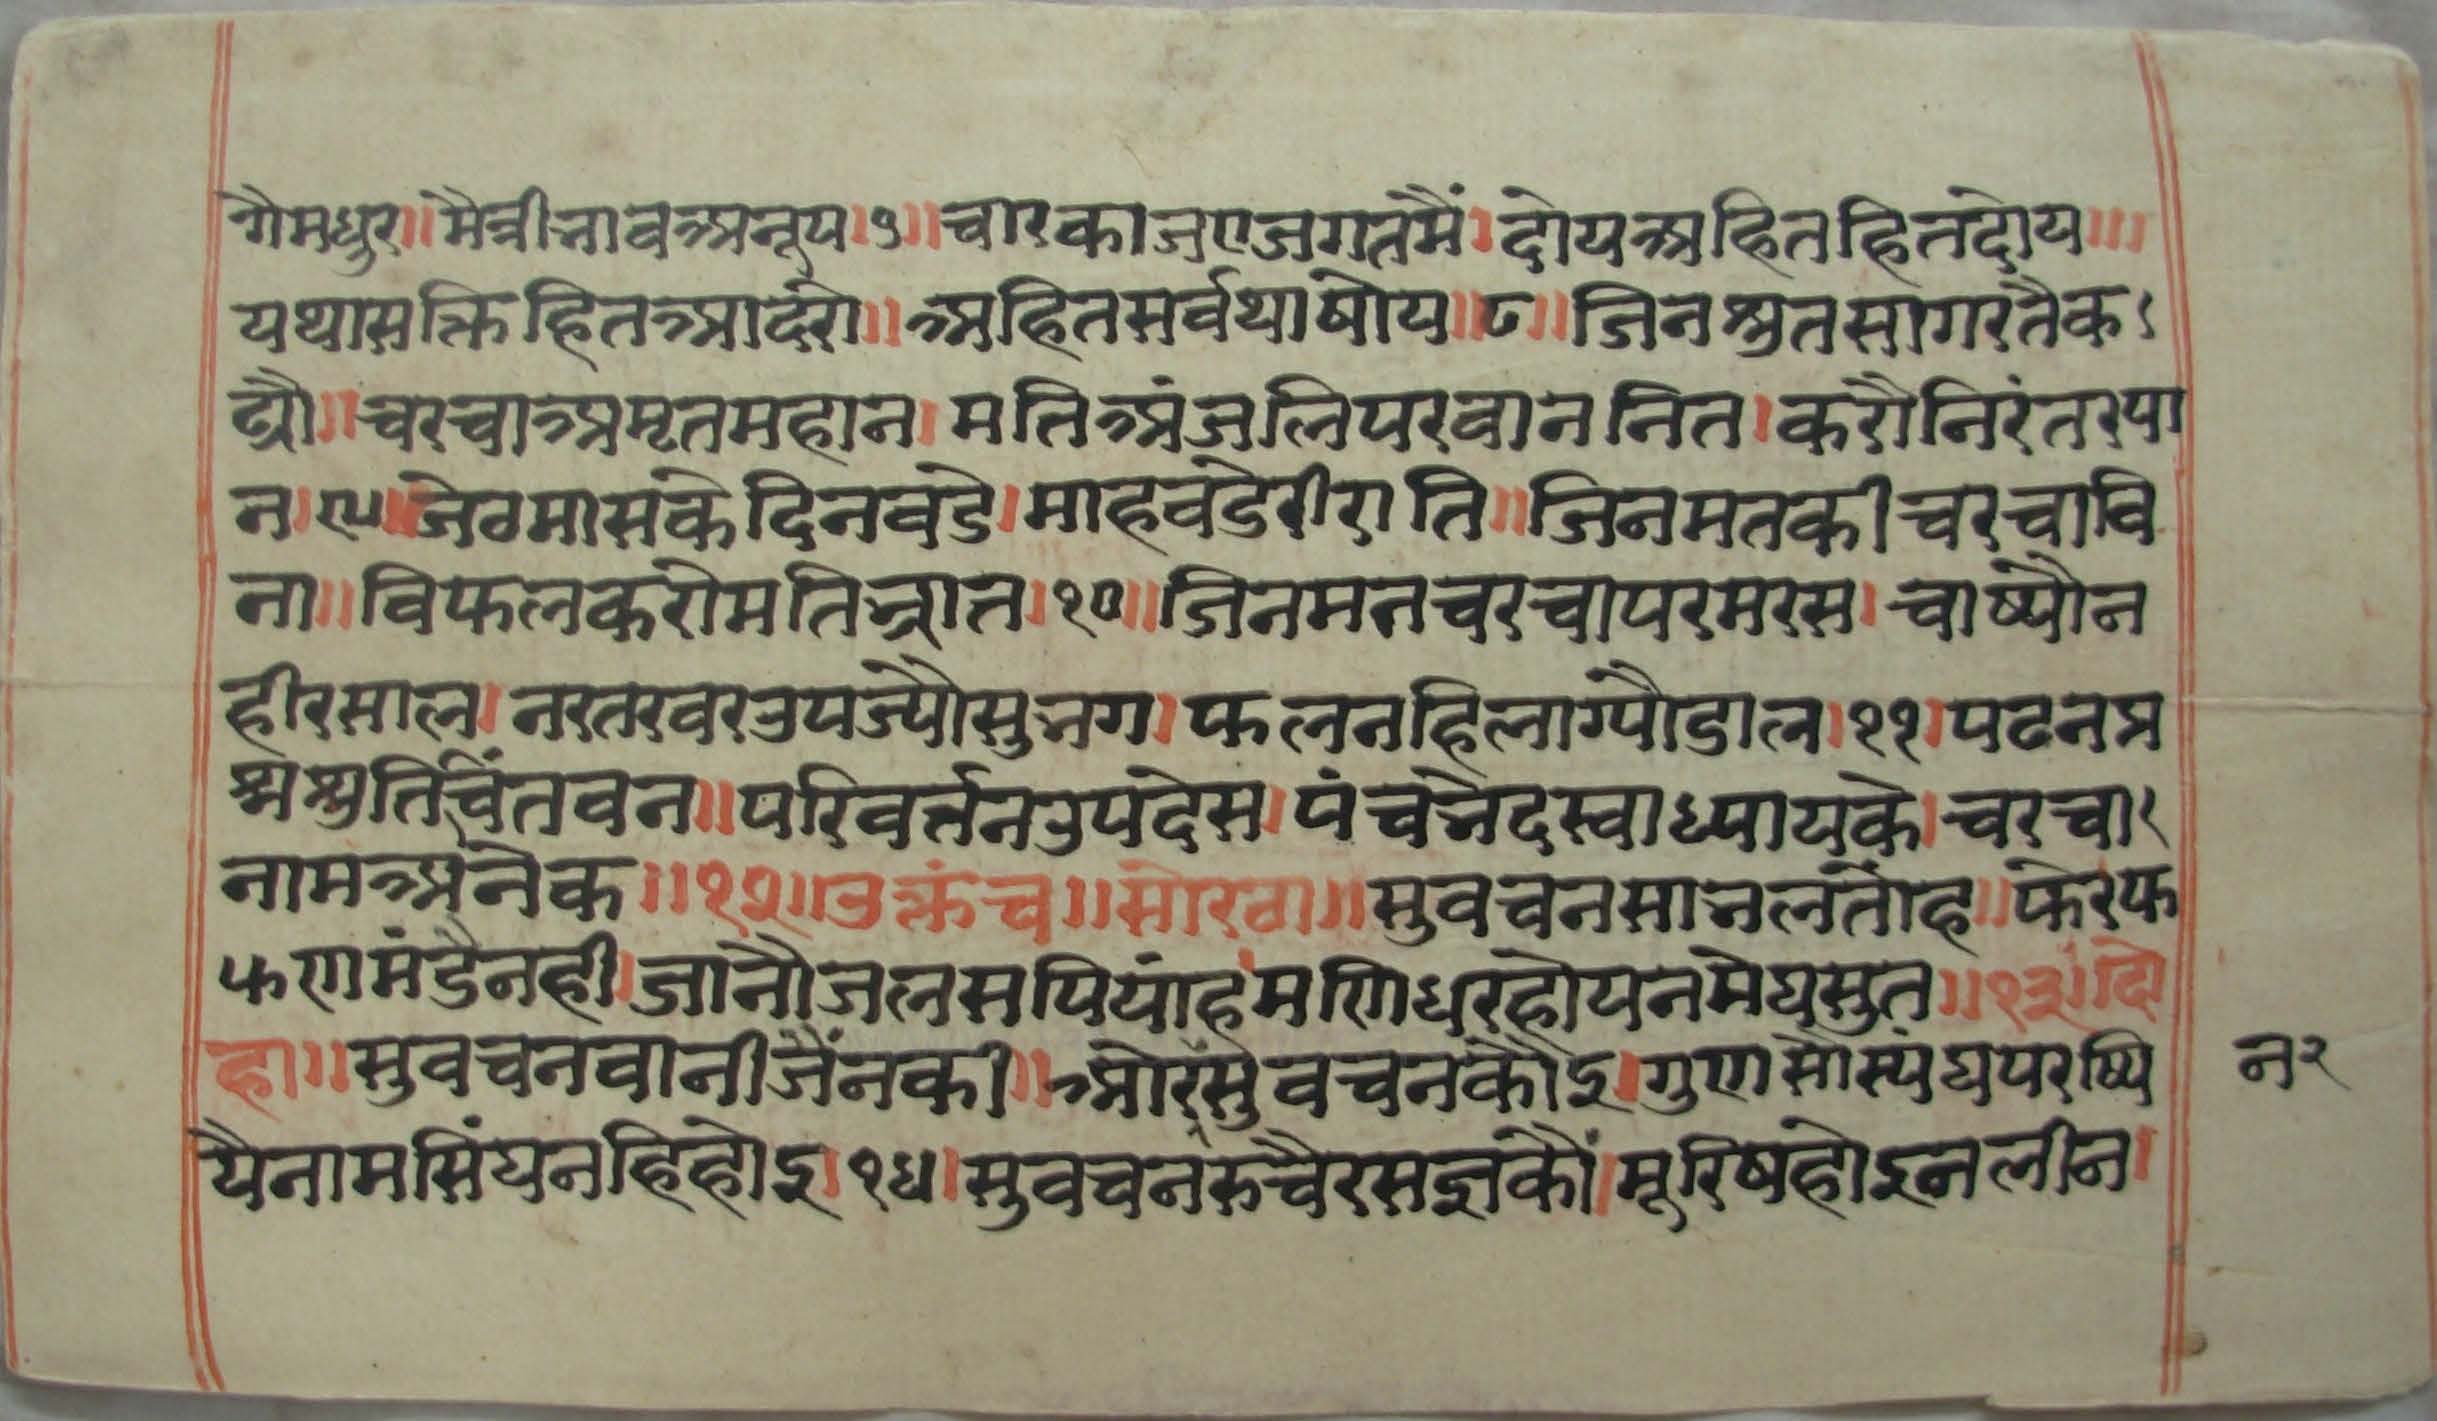 गैमधुर॥मैत्रीभावअनूप।७॥चारकाजएजगतमैं।दोयअहितहितदोय॥।
यथासक्तिहितआदरो॥अहितसर्वथाषोय॥८॥जिनश्रुतसागरतैक
ढ्यौ॥चरचाअमृतमहान।मतिअंजलिपरवाननित।करौनिरंतरपा
न।९।जेठमासकेदिनबडे।माहबडेरीराति॥जिनमतकीचरचावि
ना॥विफलकरोमतिभ्रात।१०॥जिनमतचरचापरमरस।चाष्यौन
हीरसाल।नरतरवरउपज्यौसुभग।फलनहिलाग्यौडाल।११।पठनप्र
श्नश्रुतिचिंतवन॥परिवर्त्तनउपदेस।पंचभेदस्वाध्यायके।चरचा
नामअनेक॥१२॥उक्तंच॥सोरठा॥सुवचनसाभलतांह॥फेरफ
फणमंडैनही।जानौजलसपियांहमणिधरहोयनमेघसुत॥१३॥दो
हा॥सुवचनवानीजैंनकी॥ओरसुवचनकोइ।गुणसोस्यंघपरषि
न२
यैनामसिंघनहिहोइ।१४।सुवचनरुचैरसज्ञकौं।मूरिषहोइनलीन।